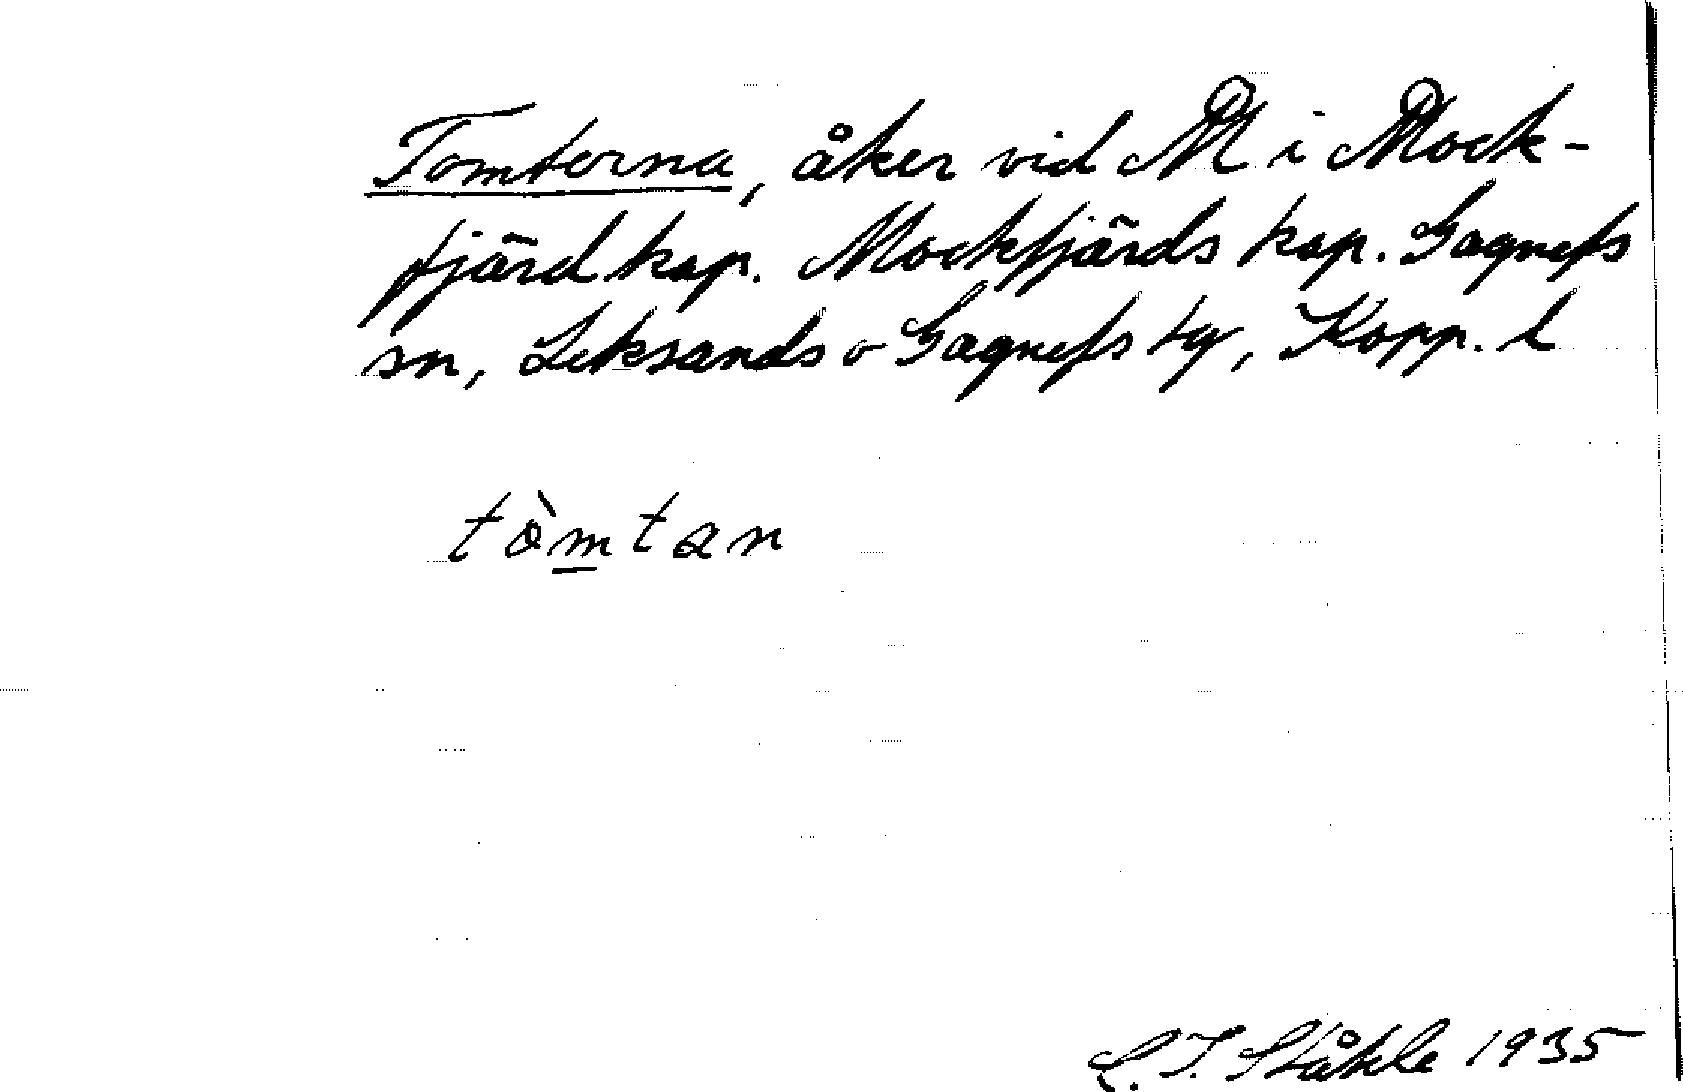 Tomterna, åker vid M i Mock-
fjärd kap. Mockfjärds kap. Gagnefs
sn, Leksands o Gagnefs tg, Kopp. l
tòmtan
C. I. Ståhle 1935